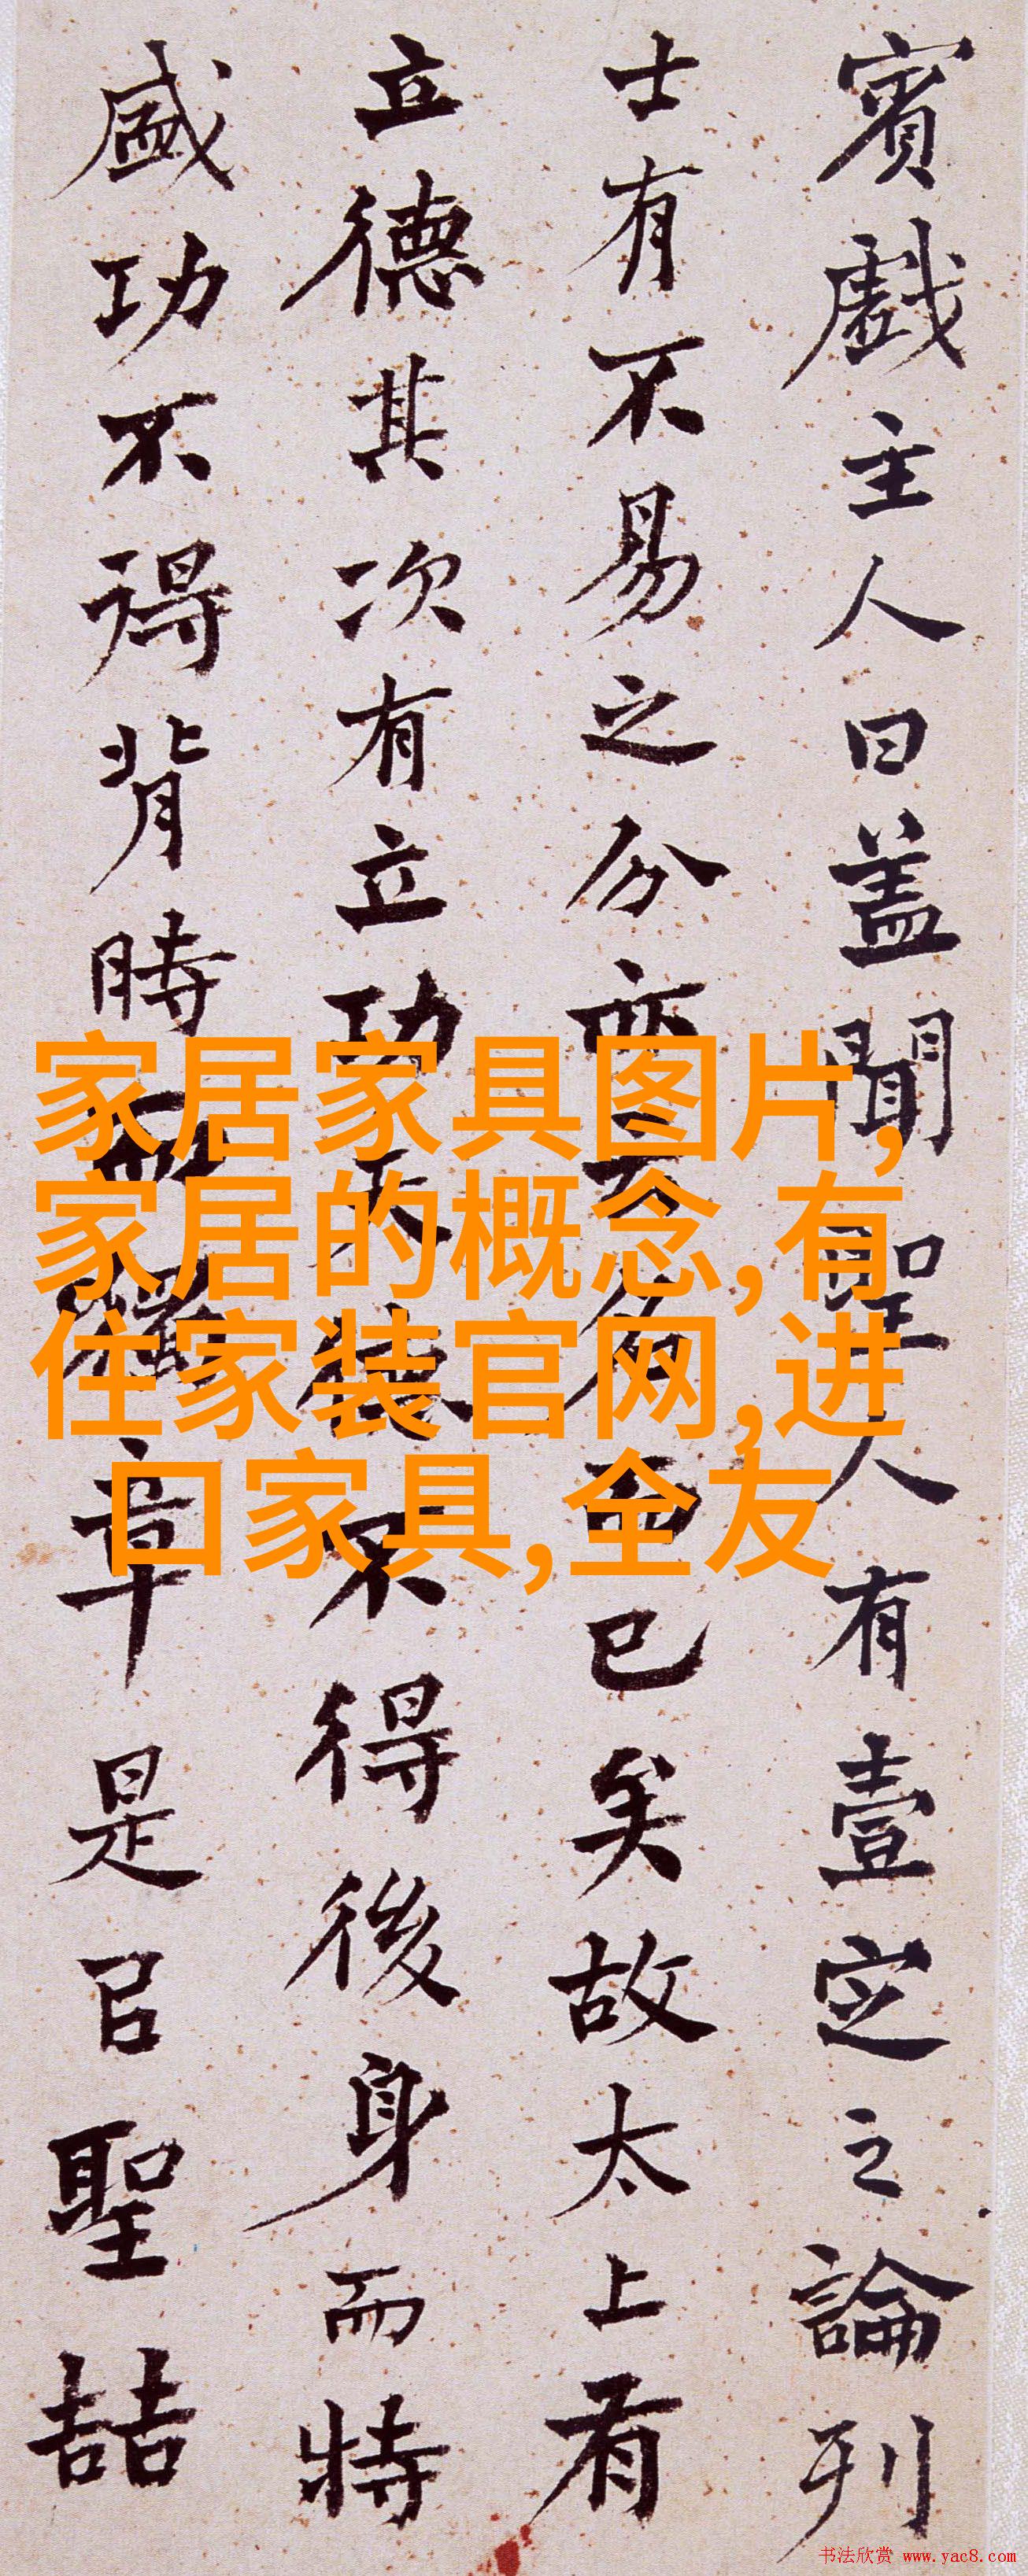 賓戲主人曰盖聞聖人有壹定之論列
士有不易之分亦云名而已矣故太上有
立德其次有立功夫德不得後身而特
盛功不得背時而獨章是㠯聖喆
家居家具图片,
家居的概念,有
住家装官网,进
口家具,全友
书法欣赏 www.yac8.com